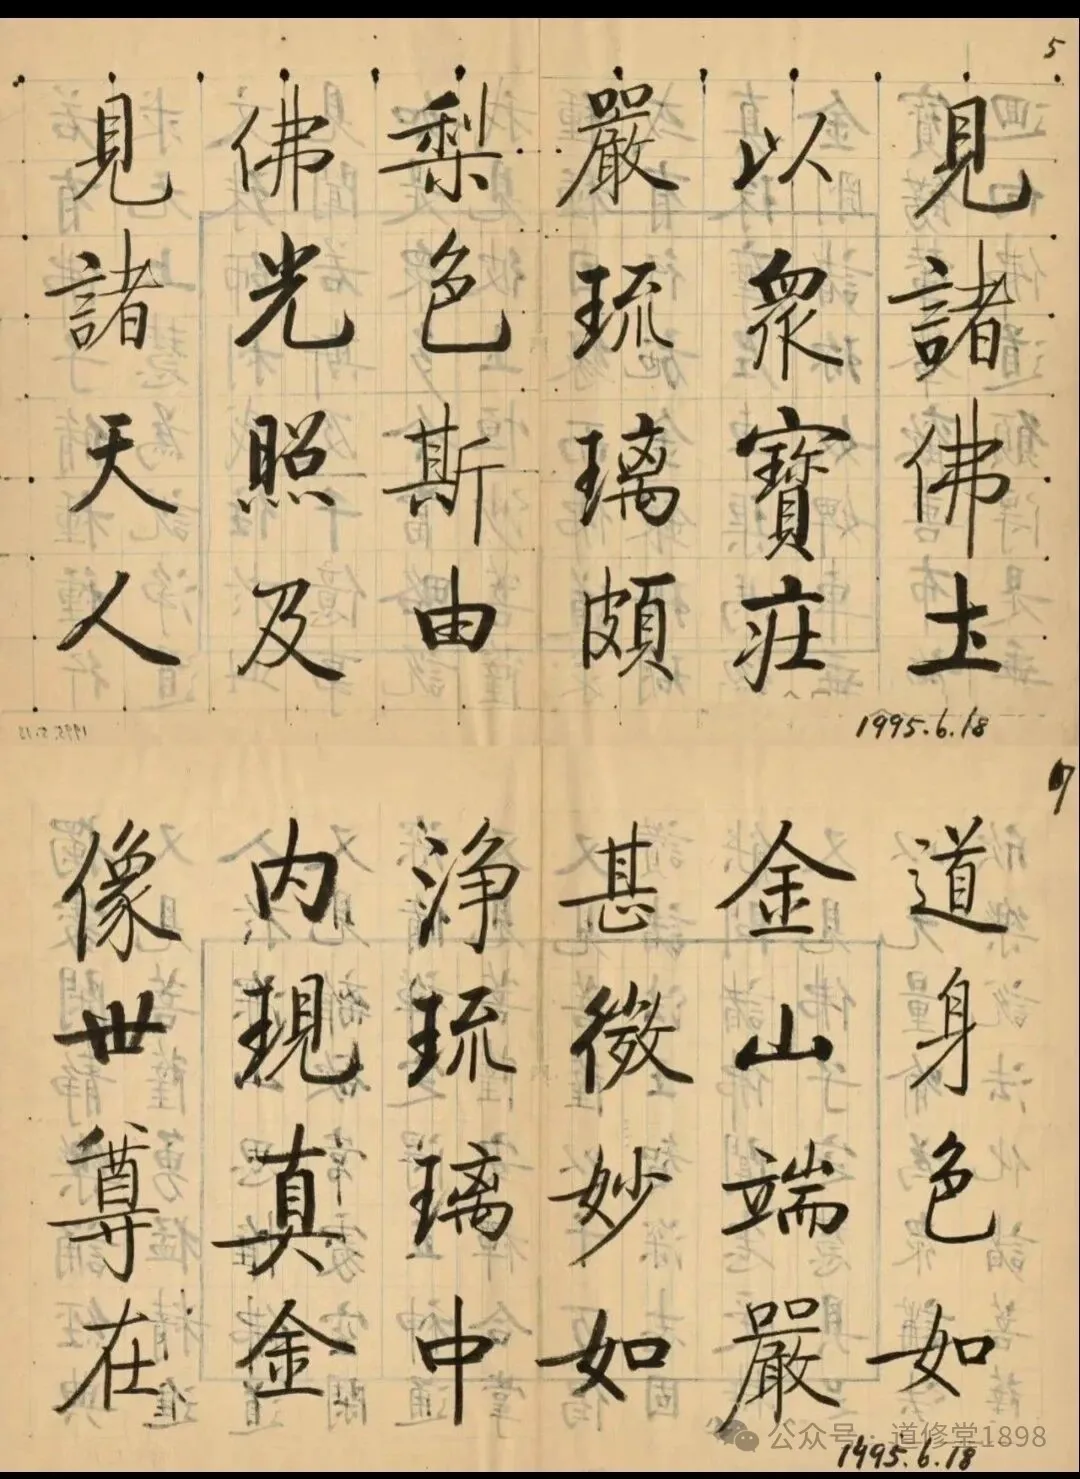 5
見諸佛土
以眾寶莊
嚴琉璃頗
梨色斯由
佛光照及
見諸天人
1995.6.18
道身色如
金山端嚴
甚微妙如
淨琉璃中
内現真金
像世尊在
1995.6.18
公众号·道修堂1898